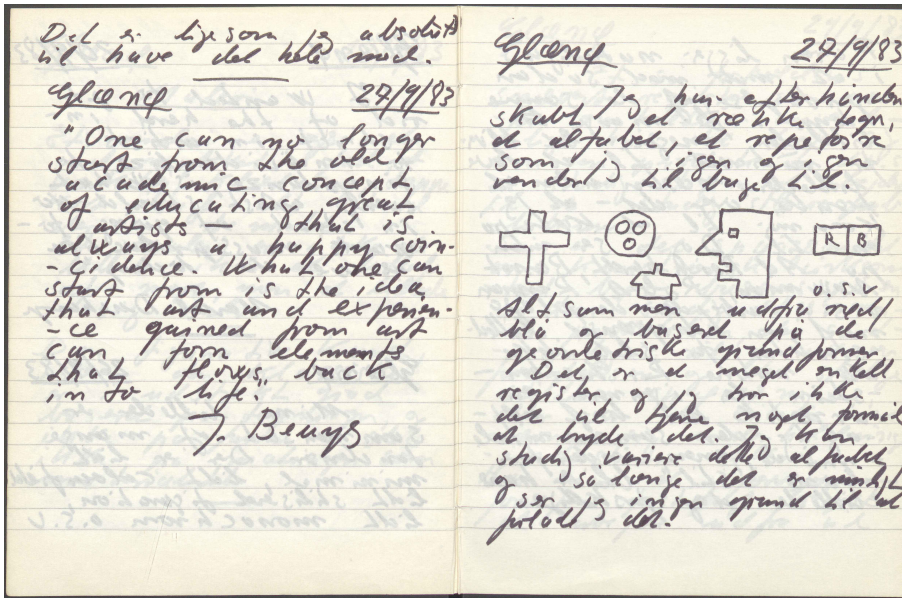 Det er ligesom jeg absolut
vil have det hele med.
Glænø 27/9/83
"One can no longer
start from the old
academic concept
of educating great
artists — that is
always a happy coin-
-cidence. What one can
start from is the idea
that art and experien-
-ce gained from art
can form elements
that flows back
into life."
J. Beuys
Glænø 27/9/83
Jeg har efterhånden
skabt et række tegn,
et alfabet, et repetoire
som jeg igen og igen
vender tilbage til.
R B
o.s.v
Alt sammen udfra rød/
blå og baseret på de
geometriske grundformer.
Det er et meget enkelt
register, og jeg tror ikke
det vil tjene noget formål
at bryde det. Jeg kan
stadig variere dette alfabet
og så længe det er muligt
ser jeg ingen grund til at
forlade det.